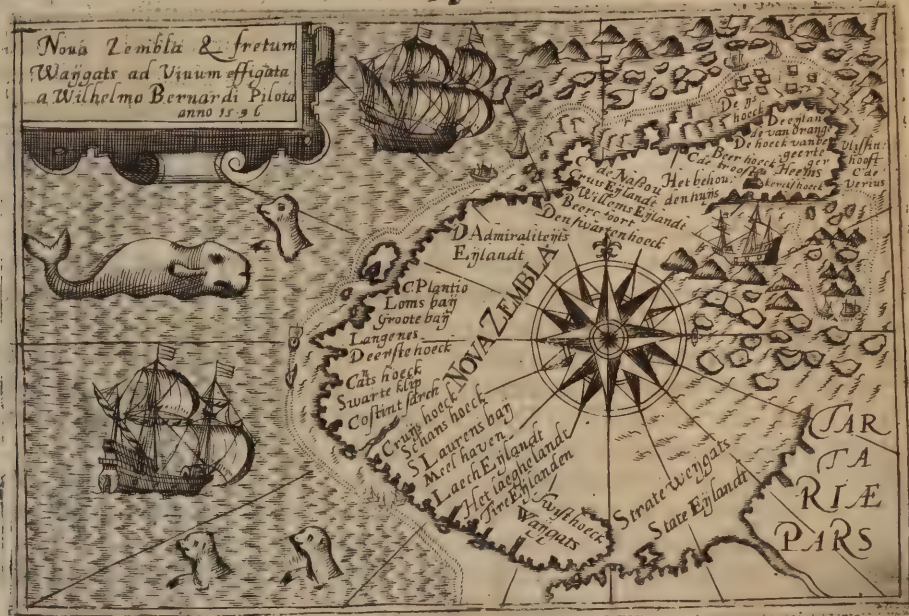 Nova Zembla & fretum
Waÿgats ad Viuum effigata
a Wilhelmo Bernardi Pilota
anno 1596
De yſ
hoeck
De eylan
de van Orange
De hoeck van be
geerte
Vliſſin:
hooft
C de
Verius
Beer hoeck
C de
Heems
ker
Het behou:
den huys
C de Naſſou
Cruis Eÿlandt
Willems Eÿlandt
Beere voort
Den ſwarten hoeck
D'Admiraliteÿts
Eÿlandt
NOVA ZEMBLA
C. Plantio
Loms baÿ
Groote baÿ
Langenes
De erſte hoeck
Cats hoeck
Swarte klip
Coſtint ſarch
Cruÿs hoeck
Schans hoeck
S Laurens baÿ
Meel haven
Laech Eÿlandt
Het laeghe landt
Tire Eÿlanden
Twiſt hoeck
Waÿgats
Strate Weÿgats
State Eÿlandt
TAR
TA
RIÆ
PARS